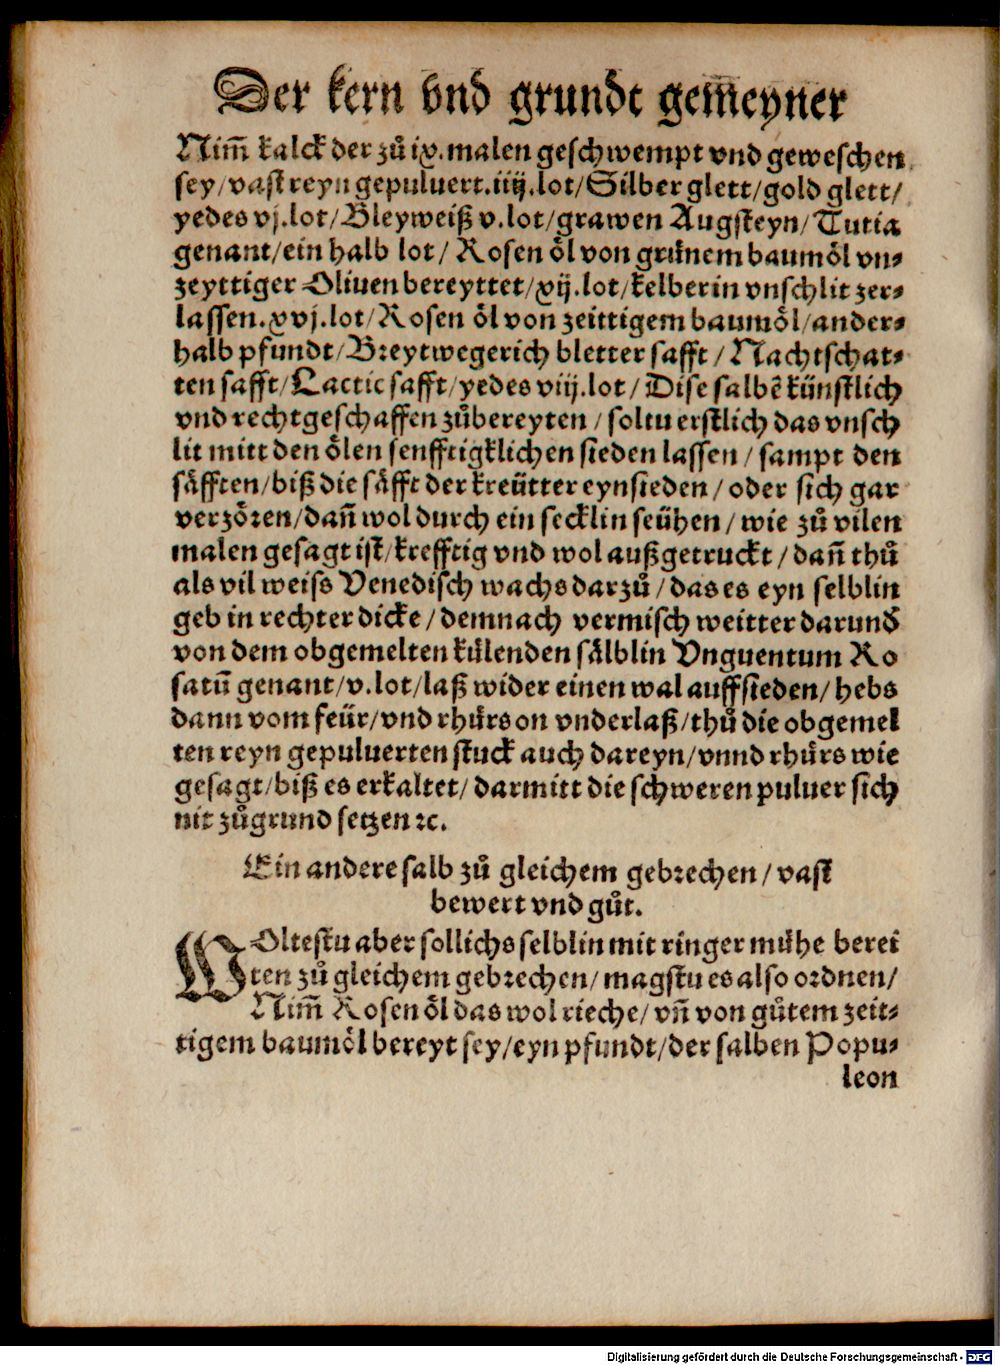 Der kern vnd grundt gem̃eyner
Nim̃ kalck der zů ix. malen geschwempt vnd geweschen
sey/ vast reyn gepuluert. iiij. lot/ Silber glett/ gold glett/
yedes vj. lot/ Bleyweiß v. lot/ grawen Augsteyn/ Tutia
genant/ ein halb lot/ Rosen oͤl von gruͤnem baumoͤl vn⸗
zeyttiger Oliuen bereyttet/ xij. lot/ kelberin vnschlit zer⸗
lassen. xvj. lot/ Rosen oͤl von zeittigem baumoͤl/ ander⸗
halb pfundt/ Breytwegerich bletter safft/ Nachtschat⸗
ten safft/ Lactic safft/ yedes viij. lot/ Dise salbẽ künstlich
vnd rechtgeschaffen zůbereyten/ soltu erstlich das vnsch
lit mitt den oͤlen senfftigklichen sieden lassen/ sampt den
saͤfften/ biß die saͤfft der kreütter eynsieden/ oder sich gar
verzoͤren/ dañ wol durch ein secklin seühen/ wie zů vilen
malen gesagt ist/ krefftig vnd wol außgetruckt/ dañ thů
als vil weiss Venedisch wachs darzů/ das es eyn selblin
geb in rechter dicke/ demnach vermisch weitter darund
von dem obgemelten kuͤlenden saͤlblin Vnguentum Ro
satũ genant/ v. lot/ laß wider einen wal auffsieden/ hebs
dann vom feür/ vnd rhuͤrs on vnderlaß/ thů die obgemel
ten reyn gepuluerten stuck auch dareyn/ vnnd rhuͤrs wie
gesagt/ biß es erkaltet/ darmitt die schweren puluer sich
nit zůgrund setzen ꝛc.
Ein andere salb zů gleichem gebrechen/ vast
bewert vnd gůt.
WOltestu aber sollichs selblin mit ringer muͤhe berei
ten zů gleichem gebrechen/ magstu es also ordnen/
Nim̃ Rosen oͤl das wol rieche/ vñ von gůtem zeit⸗
tigem baumoͤl bereyt sey/ eyn pfundt/ der salben Popu⸗
leon
Digitalisierung gefördert durch die Deutsche Forschungsgemeinschaft - DFG